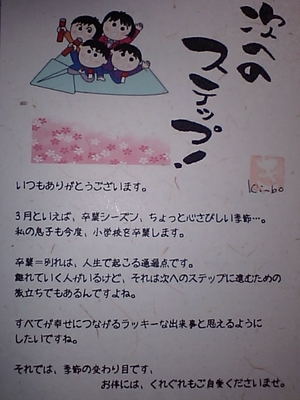 次への
ステップ!
Kin-bo
いつもありがとうございます。
3月といえば、卒業シーズン、ちょっと心さびしい季節…。
私の息子も今度、小学校を卒業します。
卒業=別れは、人生で起こる通過点です。
離れていく人がいるけど、それは次へのステップに進むための
旅立ちでもあるんですよね。
すべてが幸せにつながるラッキーな出来事と思えるように
したいですね。
それでは、季節の変わり目です、
お体には、くれぐれもご自愛くださいませ。